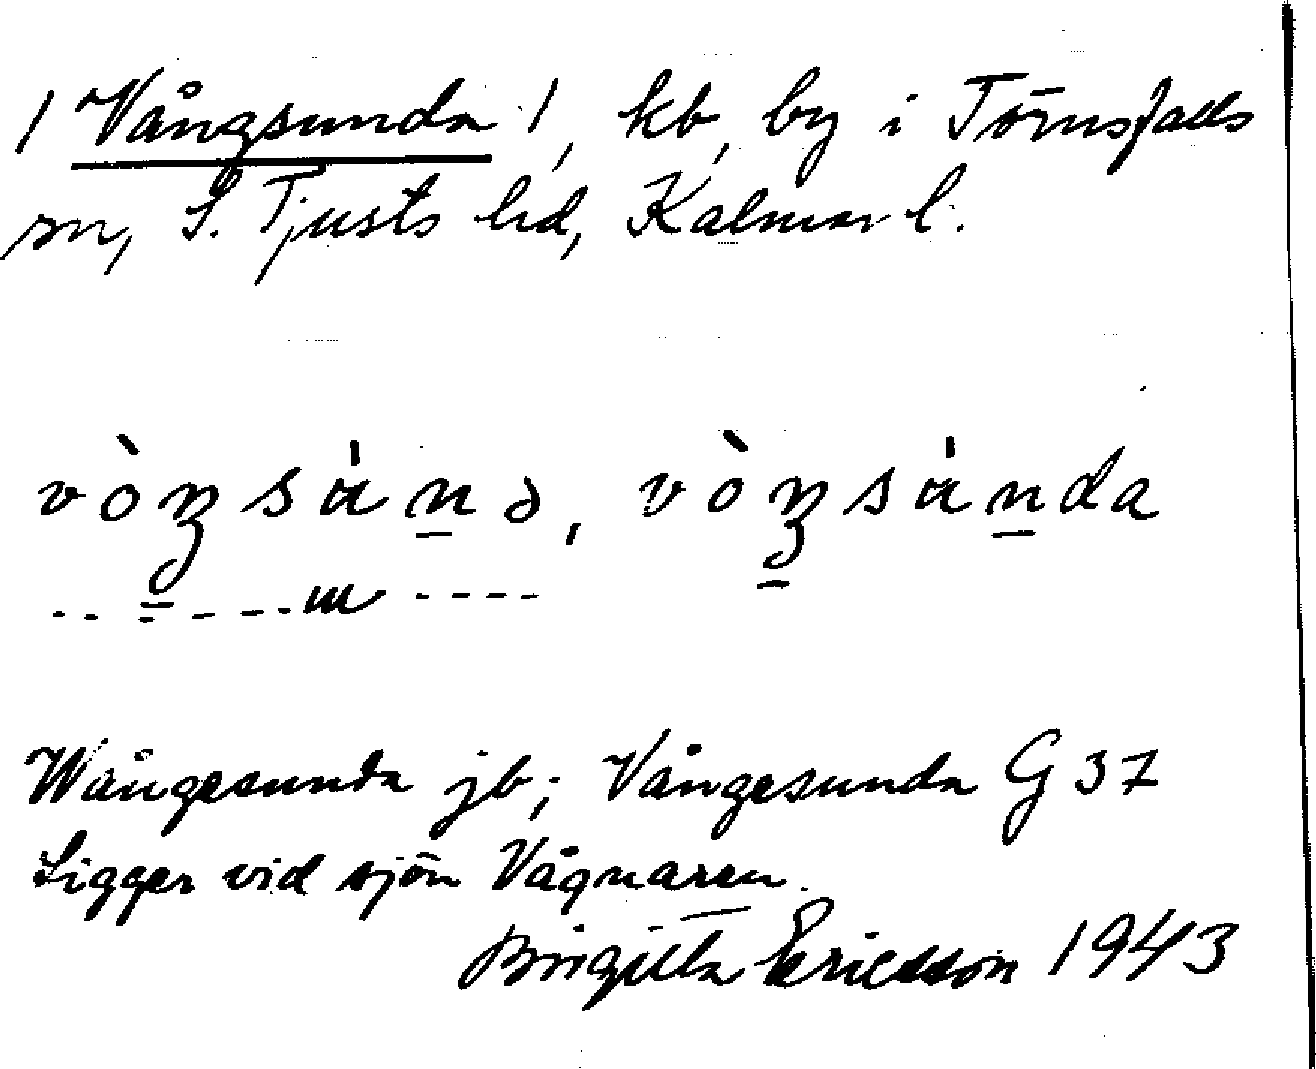 / Vångsunda /, kb, by i Törnsfalls
sn, S. Tjusts hd, Kalmar l.
Wångesunda jb; Vångesunda G 37
Ligger vid sjön Vågnaren.
Birgitta Ericsson 1943